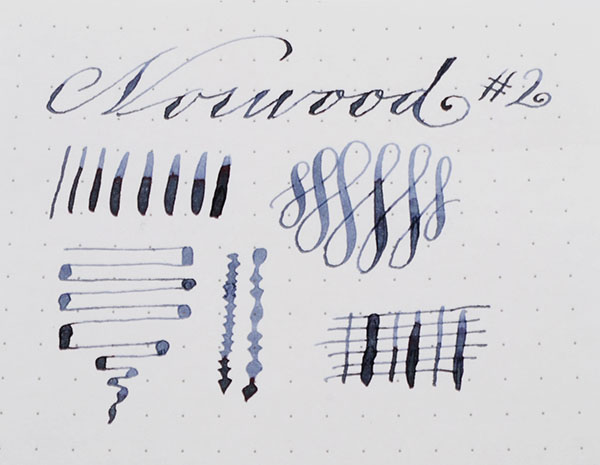 Norwood #2